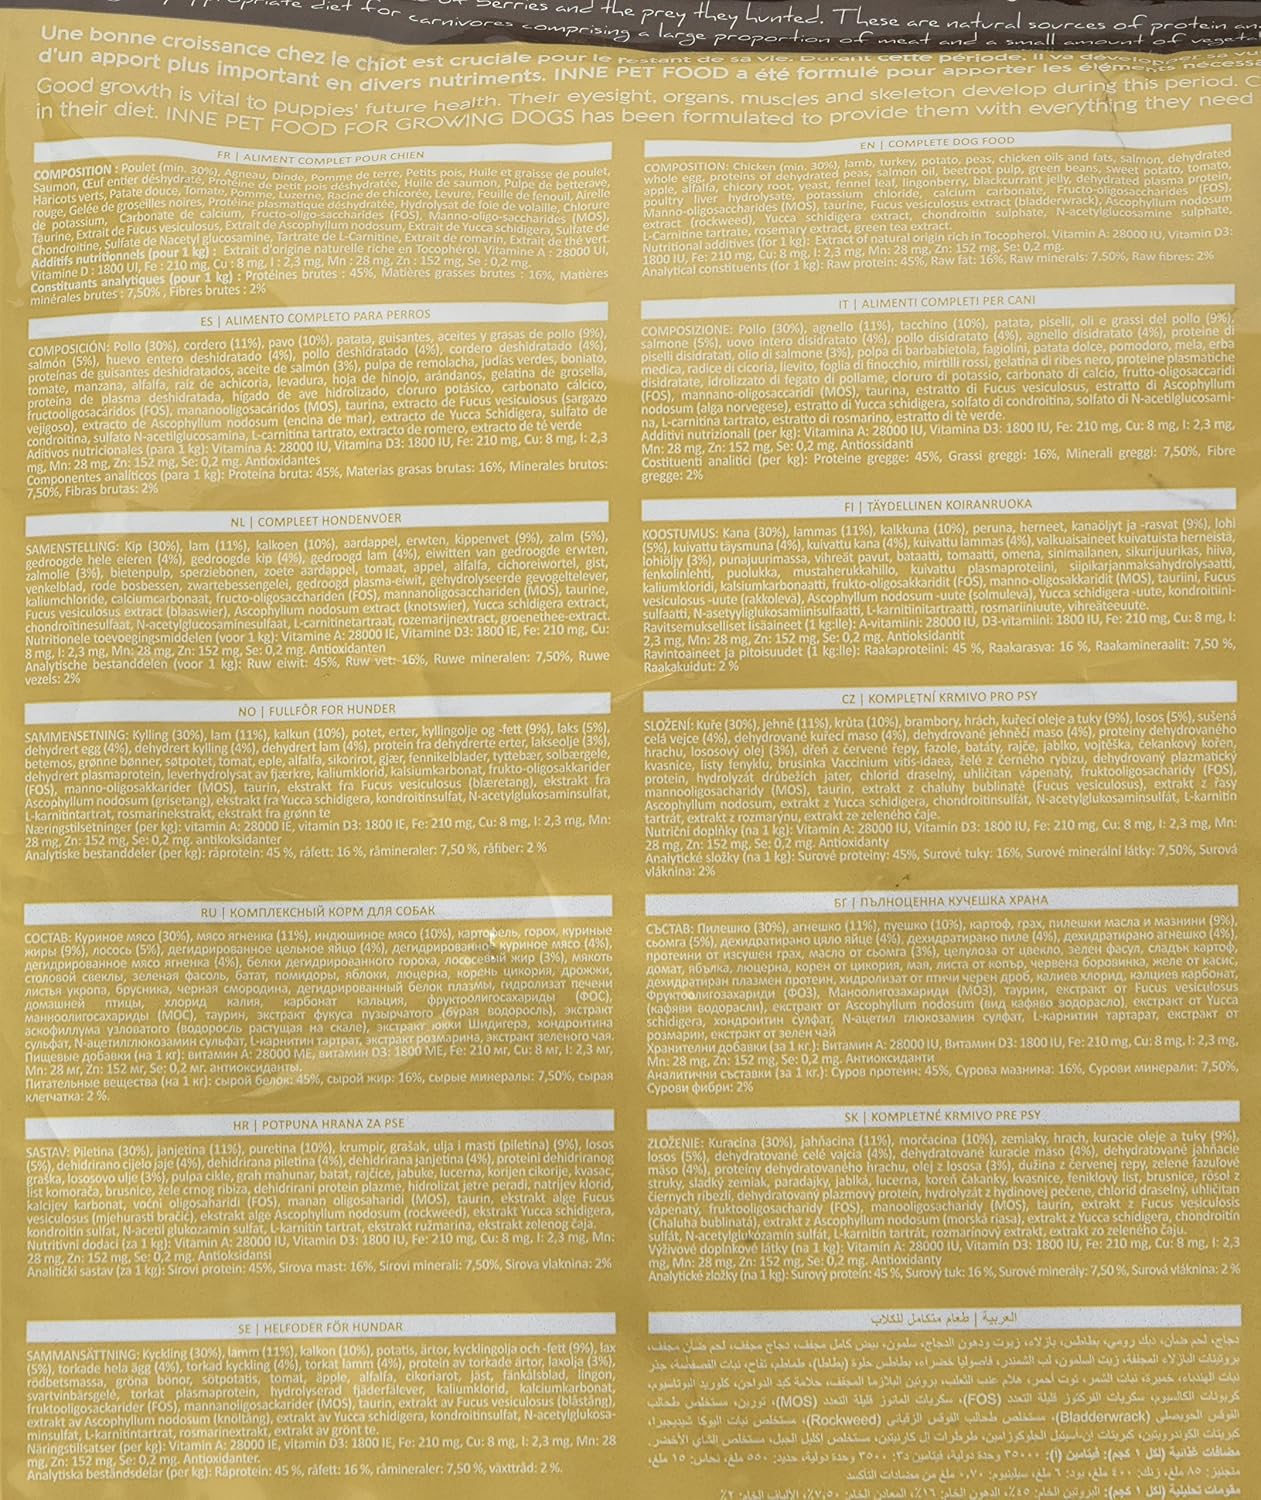 propriate diet for carnivores comprising a large proportion of meat and a small amount of
berries and the prey they hunted. These are natural sources of protein
Une bonne croissance chez le chiot est cruciale pour le restant de sa vie. Durant cette période, il va développer sa
d'un apport plus important en divers nutriments. INNE PET FOOD a été formulé pour apporter les éléments
Good growth is vital to puppies' future health. Their eyesight, organs, muscles and skeleton develop during this period.
in their diet. INNE PET FOOD FOR GROWING DOGS has been formulated to provide them with everything they need
FR | ALIMENT COMPLET POUR CHIEN
COMPOSITION : Poulet (min. 30%), Agneau, Dinde, Pomme de terre, Petits pois, Huile et graisse de poulet,
Saumon, Œuf entier déshydraté, Protéine de petit pois déshydratée, Huile de saumon, Pulpe de betterave,
Haricots verts, Patate douce, Tomate, Pomme, Luzerne, Racine de chicorée, Levure, Feuille de fenouil, Airelle
rouge, Gelée de groseilles noires, Protéine plasmatique déshydratée, Hydrolysat de foie de volaille, Chlorure
de potassium, Carbonate de calcium, Fructo-oligo-saccharides (FOS), Manno-oligo-saccharides (MOS),
Taurine, Extrait de Fucus vesiculosus, Extrait de Ascophyllum nodosum, Extrait de Yucca schidigera, Sulfate de
Chondroitine, Sulfate de Nacetyl glucosamine, Tartrate de L-Carnitine, Extrait de romarin, Extrait de thé vert.
Additifs nutritionnels (pour 1 kg) : Extrait d'origine naturelle riche en Tocophérol. Vitamine A : 28000 UI,
Vitamine D : 1800 UI, Fe : 210 mg, Cu : 8 mg, I : 2,3 mg, Mn : 28 mg, Zn : 152 mg, Se : 0,2 mg.
Constituants analytiques (pour 1 kg) : Protéines brutes : 45%, Matières grasses brutes : 16%, Matières
minérales brutes : 7,50% , Fibres brutes : 2%
EN | COMPLETE DOG FOOD
COMPOSITION: Chicken (min. 30%), lamb, turkey, potato, peas, chicken oils and fats, salmon, dehydrated
whole egg, proteins of dehydrated peas, salmon oil, beetroot pulp, green beans, sweet potato, tomato,
apple, alfalfa, chicory root, yeast, fennel leaf, lingonberry, blackcurrant jelly, dehydrated plasma protein,
poultry liver hydrolysate, potassium chloride, calcium carbonate, Fructo-oligosaccharides (FOS),
Manno-oligosaccharides (MOS), taurine, Fucus vesiculosus extract (bladderwrack), Ascophyllum nodosum
extract (rockweed), Yucca schidigera extract, chondroitin sulphate, N-acetylglucosamine sulphate,
L-Carnitine tartrate, rosemary extract, green tea extract.
Nutritional additives (for 1 kg): Extract of natural origin rich in Tocopherol. Vitamin A: 28000 IU, Vitamin D3:
1800 IU, Fe: 210 mg, Cu: 8 mg, I: 2,3 mg, Mn: 28 mg, Zn: 152 mg, Se: 0,2 mg.
Analytical constituents (for 1 kg): Raw protein: 45%, Raw fat: 16%, Raw minerals: 7,50%, Raw fibres: 2%
ES | ALIMENTO COMPLETO PARA PERROS
COMPOSICIÓN: Pollo (30%), cordero (11%), pavo (10%), patata, guisantes, aceites y grasas de pollo (9%),
salmón (5%), huevo entero deshidratado (4%), pollo deshidratado (4%), cordero deshidratado (4%),
proteínas de guisantes deshidratados, aceite de salmón (3%), pulpa de remolacha, judías verdes, boniato,
tomate, manzana, alfalfa, raíz de achicoria, levadura, hoja de hinojo, arándanos, gelatina de grosella,
proteína de plasma deshidratada, hígado de ave hidrolizado, cloruro potásico, carbonato cálcico,
fructooligosacáridos (FOS), mananooligosacáridos (MOS), taurina, extracto de Fucus vesiculosus (sargazo
vejigoso), extracto de Ascophyllum nodosum (encina de mar), extracto de Yucca Schidigera, sulfato de
condroitina, sulfato N-acetilglucosamina, L-carnitina tartrato, extracto de romero, extracto de té verde
Aditivos nutricionales (para 1 kg): Vitamina A: 28000 IU, Vitamina D3: 1800 IU, Fe: 210 mg, Cu: 8 mg, I: 2,3
mg, Mn: 28 mg, Zn: 152 mg, Se: 0,2 mg. Antioxidantes
Componentes analíticos (para 1 kg): Proteína bruta: 45%, Materias grasas brutas: 16%, Minerales brutos:
7,50%, Fibras brutas: 2%
IT | ALIMENTI COMPLETI PER CANI
COMPOSIZIONE: Pollo (30%), agnello (11%), tacchino (10%), patata, piselli, oli e grassi del pollo (9%),
salmone (5%), uovo intero disidratato (4%), pollo disidratato (4%), agnello disidratato (4%), proteine di
piselli disidratati, olio di salmone (3%), polpa di barbabietola, fagiolini, patata dolce, pomodoro, mela, erba
medica, radice di cicoria, lievito, foglia di finocchio, mirtilli rossi, gelatina di ribes nero, proteine plasmatiche
disidratate, idrolizzato di fegato di pollame, cloruro di potassio, carbonato di calcio, frutto-oligosaccaridi
(FOS), mannano-oligosaccaridi (MOS), taurina, estratto di Fucus vesiculosus, estratto di Ascophyllum
nodosum (alga norvegese), estratto di Yucca schidigera, solfato di condroitina, solfato di N-acetylglucosami-
na, L-carnitina tartrato, estratto di rosmarino, estratto di tè verde.
Additivi nutrizionali (per kg): Vitamina A: 28000 IU, Vitamina D3: 1800 IU, Fe: 210 mg, Cu: 8 mg, I: 2,3 mg,
Mn: 28 mg, Zn: 152 mg, Se: 0,2 mg. Antiossidanti
Costituenti analitici (per kg): Proteine gregge: 45%, Grassi greggi: 16%, Minerali greggi: 7,50%, Fibre
gregge: 2%
NL | COMPLEET HONDENVOER
SAMENSTELLING: Kip (30%), lam (11%), kalkoen (10%), aardappel, erwten, kippenvet (9%), zalm (5%),
gedroogde hele eieren (4%), gedroogde kip (4%), gedroogd lam (4%), eiwitten van gedroogde erwten,
zalmolie (3%), bietenpulp, sperziebonen, zoete aardappel, tomaat, appel, alfalfa, cichoreiwortel, gist,
venkelblad, rode bosbessen, zwartebessengelei, gedroogd plasma-eiwit, gehydrolyseerde gevogeltelever,
kaliumchloride, calciumcarbonaat, fructo-oligosacchariden (FOS), mannanoligosacchariden (MOS), taurine,
Fucus vesiculosus extract (blaaswier), Ascophyllum nodosum extract (knotswier), Yucca schidigera extract,
chondroitinesulfaat, N-acetylglucosaminesulfaat, L-carnitinetartraat, rozemarijnextract, groenethee-extract.
Nutritionele toevoegingsmiddelen (voor 1 kg): Vitamine A: 28000 IE, Vitamine D3: 1800 IE, Fe: 210 mg, Cu:
8 mg, I: 2,3 mg, Mn: 28 mg, Zn: 152 mg, Se: 0,2 mg. Antioxidanten
Analytische bestanddelen (voor 1 kg): Ruw eiwit: 45%, Ruw vet: 16%, Ruwe mineralen: 7,50%, Ruwe
vezels: 2%
FI | TÄYDELLINEN KOIRANRUOKA
KOOSTUMUS: Kana (30%), lammas (11%), kalkkuna (10%), peruna, herneet, kanaöljyt ja -rasvat (9%), lohi
(5%), kuivattu täysmuna (4%), kuivattu kana (4%), kuivattu lammas (4%), valkuaisaineet kuivatuista herneistä,
lohiöljy (3%), punajuurimassa, vihreät pavut, bataatti, tomaatti, omena, sinimailanen, sikurijuurikas, hiiva,
fenkolinlehti, puolukka, mustaherukkahillo, kuivattu plasmaproteiini, siipikarjanmaksahydrolysaatti,
kaliumkloridi, kalsiumkarbonaatti, frukto-oligosakkaridit (FOS), manno-oligosakkaridit (MOS), tauriini, Fucus
vesiculosus -uute (rakkolevä), Ascophyllum nodosum -uute (solmulevä), Yucca schidigera -uute, kondroitiini-
sulfaatti, N-asetyyliglukosamiinisulfaatti, L-karnitiinitartraatti, rosmariiniuute, vihreäteeuute.
Ravitsemukselliset lisäaineet (1 kg:lle): A-vitamiini: 28000 IU, D3-vitamiini: 1800 IU, Fe: 210 mg, Cu: 8 mg, I:
2,3 mg, Mn: 28 mg, Zn: 152 mg, Se: 0,2 mg. Antioksidantit
Ravintoaineet ja pitoisuudet (1 kg:lle): Raakaproteiini: 45 %, Raakarasva: 16 %, Raakamineraalit: 7,50 %,
Raakakuidut: 2 %
NO | FULLFÔR FOR HUNDER
SAMMENSETNING: Kylling (30%), lam (11%), kalkun (10%), potet, erter, kyllingolje og -fett (9%), laks (5%),
dehydrert egg (4%), dehydrert kylling (4%), dehydrert lam (4%), protein fra dehydrerte erter, lakseolje (3%),
betemos, grønne bønner, søtpotet, tomat, eple, alfalfa, sikorirot, gjær, fennikelblader, tyttebær, solbærgele,
dehydrert plasmaprotein, leverhydrolysat av fjærkre, kaliumklorid, kalsiumkarbonat, frukto-oligosakkarider
(FOS), manno-oligosakkarider (MOS), taurin, ekstrakt fra Fucus vesiculosus (blæretang), ekstrakt fra
Ascophyllum nodosum (grisetang), ekstrakt fra Yucca schidigera, kondroitinsulfat, N-acetylglukosaminsulfat,
L-karnitintartrat, rosmarinekstrakt, ekstrakt fra grønn te
Næringstilsetninger (per kg): vitamin A: 28000 IE, vitamin D3: 1800 IE, Fe: 210 mg, Cu: 8 mg, I: 2,3 mg, Mn:
28 mg, Zn: 152 mg, Se: 0,2 mg. antikoksidanter
Analytiske bestanddeler (per kg): råprotein: 45 %, råfett: 16 %, råmineraler: 7,50 %, råfiber: 2 %
CZ | KOMPLETNÍ KRMIVO PRO PSY
SLOŽENÍ: Kuře (30%), jehně (11%), krůta (10%), brambory, hrách, kuřecí oleje a tuky (9%), losos (5%), sušená
celá vejce (4%), dehydrované kuřecí maso (4%), dehydrované jehněčí maso (4%), proteiny dehydrovaného
hrachu, lososový olej (3%), dřeň z červené řepy, fazole, batáty, rajče, jablko, vojtěška, čekankový kořen,
kvasnice, listy fenyklu, brusinka Vaccinium vitis-idaea, želé z černého rybízu, dehydrovaný plazmatický
protein, hydrolyzát drůbežích jater, chlorid draselný, uhličitan vápenatý, fruktooligosacharidy (FOS),
mannooligosacharidy (MOS), taurin, extrakt z chaluhy bublinaté (Fucus vesiculosus), extrakt z řasy
Ascophyllum nodosum, extrakt z Yucca schidigera, chondroitinsulfát, N-acetylglukosaminsulfát, L-karnitin
tartrát, extrakt z rozmarýnu, extrakt ze zeleného čaje.
Nutriční doplňky (na 1 kg): Vitamín A: 28000 IU, Vitamín D3: 1800 IU, Fe: 210 mg, Cu: 8 mg, I: 2,3 mg, Mn:
28 mg, Zn: 152 mg, Se: 0,2 mg. Antioxidanty
Analytické složky (na 1 kg): Surové proteiny: 45%, Surové tuky: 16%, Surové minerální látky: 7,50%, Surová
vláknina: 2%
RU | КОМПЛЕКСНЫЙ КОРМ ДЛЯ СОБАК
СОСТАВ: Куриное мясо (30%), мясо ягненка (11%), индюшиное мясо (10%), картофель, горох, куриные
жиры (9%), лосось (5%), дегидрированное цельное яйцо (4%), дегидрированное куриное мясо (4%),
дегидрированное мясо ягненка (4%), белки дегидрированного гороха, лососевый жир (3%), мякоть
столовой свеклы, зеленая фасоль, батат, помидоры, яблоки, люцерна, корень цикория, дрожжи,
листья укропа, брусника, черная смородина, дегидрированный белок плазмы, гидролизат печени
домашней птицы, хлорид калия, карбонат кальция, фруктоолигосахариды (ФОС),
манноолигосахариды (МОС), таурин, экстракт фукуса пузырчатого (бурая водоросль), экстракт
аскофиллума узловатого (водоросль растущая на скале), экстракт юкки Шидигера, хондроитина
сульфат, N-ацетилглюкозамин сульфат, L-карнитин тартрат, экстракт розмарина, экстракт зеленого чая.
Пищевые добавки (на 1 кг): витамин А: 28000 МЕ, витамин D3: 1800 МЕ, Fe: 210 мг, Cu: 8 мг, I: 2,3 мг,
Mn: 28 мг, Zn: 152 мг, Se: 0,2 мг. антиоксиданты.
Питательные вещества (на 1 кг): сырой белок: 45%, сырой жир: 16%, сырые минералы: 7,50%, сырая
клетчатка: 2 %.
БГ | ПЪЛНОЦЕННА КУЧЕШКА ХРАНА
СЪСТАВ: Пилешко (30%), агнешко (11%), пуешко (10%), картоф, грах, пилешки масла и мазнини (9%),
сьомга (5%), дехидратирано цяло яйце (4%), дехидратирано пиле (4%), дехидратирано агнешко (4%),
протеини от изсушен грах, масло от сьомга (3%), целулоза от цвекло, зелен фасул, сладък картоф,
домат, ябълка, люцерна, корен от цикория, мая, листа от копър, червена боровинка, желе от касис,
дехидратиран плазмен протеин, хидролизат от птичи черен дроб, калиев хлорид, калциев карбонат,
Фруктоолигозахариди (ФОЗ), Маноолигозахариди (МОЗ), таурин, екстракт от Fucus vesiculosus
(кафяви водорасли), екстракт от Ascophyllum nodosum (вид кафяво водорасло), екстракт от Yucca
schidigera, хондроитин сулфат, N-ацетил глюкозамин сулфат, L-карнитин тартарат, екстракт от
розмарин, екстракт от зелен чай
Хранителни добавки (за 1 кг.): Витамин А: 28000 IU, Витамин D3: 1800 IU, Fe: 210 mg, Cu: 8 mg, I: 2,3 mg,
Mn: 28 mg, Zn: 152 mg, Se: 0,2 mg. Антиоксиданти
Аналитични съставки (за 1 кг.): Суров протеин: 45%, Сурова мазнина: 16%, Сурови минерали: 7,50%,
Сурови фибри: 2%
HR | POTPUNA HRANA ZA PSE
SASTAV: Piletina (30%), janjetina (11%), puretina (10%), krumpir, grašak, ulja i masti (piletina) (9%), losos
(5%), dehidrirano cijelo jaje (4%), dehidrirana piletina (4%), dehidrirana janjetina (4%), proteini dehidriranog
graška, lososovo ulje (3%), pulpa cikle, grah mahunar, batat, rajčice, jabuke, lucerna, korijen cikorije, kvasac,
list komorača, brusnice, žele crnog ribiza, dehidrirani protein plazme, hidrolizat jetre peradi, natrijev klorid,
kalcijev karbonat, voćni oligosaharidi (FOS), manan oligosaharidi (MOS), taurin, ekstrakt alge Fucus
vesiculosus (mjehurasti bračić), ekstrakt alge Ascophyllum nodosum (rockweed), ekstrakt Yucca schidigera,
kondroitin sulfat, N-acetil glukozamin sulfat, L-karnitin tartrat, ekstrakt ružmarina, ekstrakt zelenog čaja.
Nutritivni dodaci (za 1 kg): Vitamin A: 28000 IU, Vitamin D3: 1800 IU, Fe: 210 mg, Cu: 8 mg, I: 2,3 mg, Mn:
28 mg, Zn: 152 mg, Se: 0,2 mg. Antioksidansi
Analitički sastav (za 1 kg): Sirovi protein: 45%, Sirova mast: 16%, Sirovi minerali: 7,50%, Sirova vlaknina: 2%
SK | KOMPLETNÉ KRMIVO PRE PSY
ZLOŽENIE: Kuracina (30%), jahňacina (11%), morčacina (10%), zemiaky, hrach, kuracie oleje a tuky (9%),
losos (5%), dehydratované celé vajcia (4%), dehydratované kuracie mäso (4%), dehydratované jahňacie
mäso (4%), proteíny dehydratovaného hrachu, olej z lososa (3%), dužina z červenej repy, zelené fazuľové
struky, sladký zemiak, paradajky, jablká, lucerna, koreň čakanky, kvasnice, feniklový list, brusnice, rôsol z
čiernych ríbezlí, dehydratovaný plazmový proteín, hydrolyzát z hydinovej pečene, chlorid draselný, uhličitan
vápenatý, fruktooligosacharidy (FOS), manooligosacharidy (MOS), taurín, extrakt z Fucus vesiculosis
(Chaluha bublinatá), extrakt z Ascophyllum nodosum (morská riasa), extrakt z Yucca schidigera, chondroitín
sulfát, N-acetylglukózamín sulfát, L-karnitín tartrát, rozmarínový extrakt, extrakt zo zeleného čaju.
Výživové doplnkové látky (na 1 kg): Vitamín A: 28000 IU, Vitamín D3: 1800 IU, Fe: 210 mg, Cu: 8 mg, I: 2,3
mg, Mn: 28 mg, Zn: 152 mg, Se: 0,2 mg. Antioxidanty
Analytické zložky (na 1 kg): Surový proteín: 45 %, Surový tuk: 16 %, Surové minerály: 7,50 %, Surová vláknina: 2 %
SE | HELFODER FÖR HUNDAR
SAMMANSÄTTNING: Kyckling (30%), lamm (11%), kalkon (10%), potatis, ärtor, kycklingolja och -fett (9%), lax
(5%), torkade hela ägg (4%), torkad kyckling (4%), torkat lamm (4%), protein av torkade ärtor, laxolja (3%),
rödbetsmassa, gröna bönor, sötpotatis, tomat, äpple, alfalfa, cikoriarot, jäst, fänkålsblad, lingon,
svartvinbärsgelé, torkat plasmaprotein, hydrolyserad fjäderfälever, kaliumklorid, kalciumkarbonat,
fruktooligosackarider (FOS), mannanoligosackarider (MOS), taurin, extrakt av Fucus vesiculosus (blåstång),
extrakt av Ascophyllum nodosum (knöltång), extrakt av Yucca schidigera, kondroitinsulfat, N-acetylglukosa-
minsulfat, L-karnitintartrat, rosmarinextrakt, extrakt av grönt te.
Näringstillsatser (per kg): Vitamin A: 28000 IE, vitamin D3: 1800 IE, Fe: 210 mg, Cu: 8 mg, I: 2,3 mg, Mn: 28
mg, Zn: 152 mg, Se: 0,2 mg. Antioxidanter.
Analytiska beståndsdelar (per kg): Råprotein: 45 %, råfett: 16 %, råmineraler: 7,50 %, växttråd: 2 %.
العربية | طعام متكامل للكلاب
دجاج، لحم ضان، ديك رومي، بطاطس، بازلاء، زيوت ودهون الدجاج، سلمون، بيض كامل مجفف، لحم ضان مجفف،
بروتينات البازلاء المجففة، زيت السلمون، لب الشمندر، فاصوليا خضراء، بطاطس حلوة (بطاطا)، طماطم، تفاح، نبات الفصفصة، جذر
كربونات الكالسيوم، سكريات الفركتوز قليلة التعدد (FOS)، سكريات المانوز قليلة التعدد (MOS)، تورين، مستخلص طحالب
(Bladderwrack)، مستخلص طحالب (Rockweed)، مستخلص نبات اليوكا شيديجيرا،